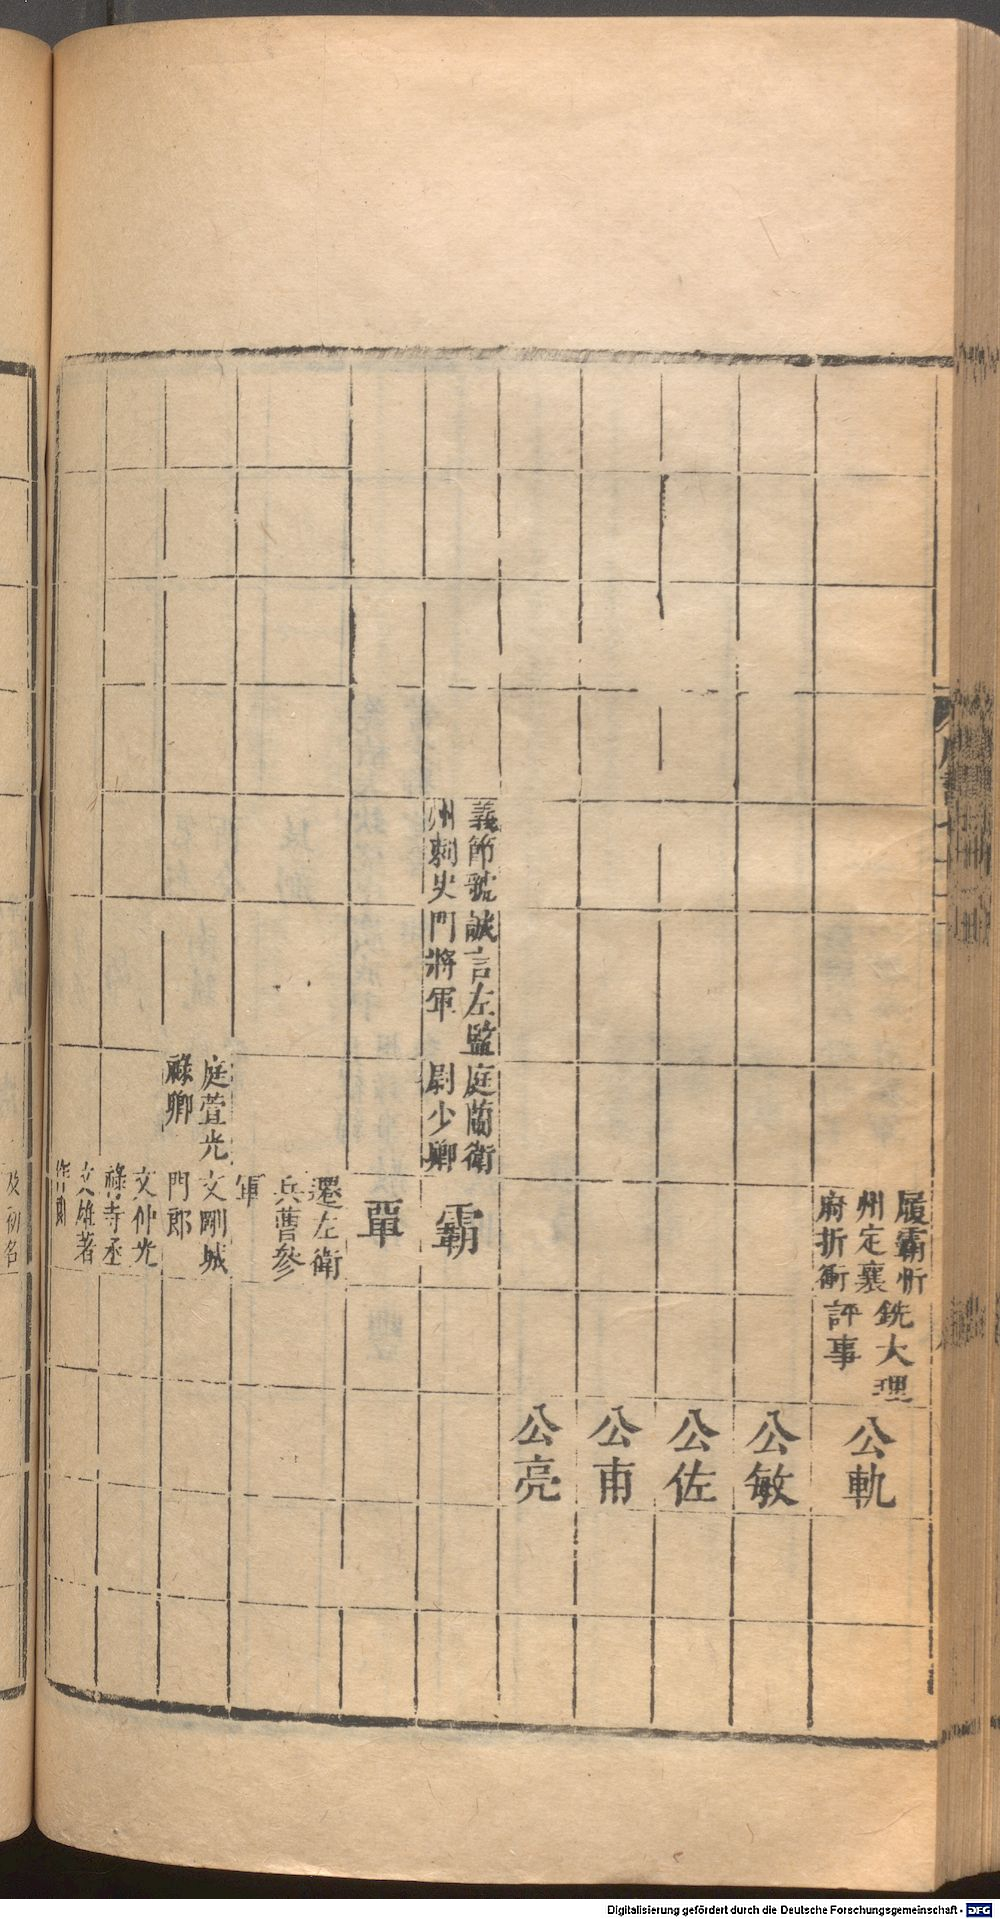 履霸忻
州定襄
府折衝
銑大理
評事
公軌
公敏
公佐
公甫
公亮
義節虢
州刺史
誠言左監
門將軍
庭蘭衛
尉少卿
霸
單
還左衛
兵曹參
軍
庭萱光
祿卿
文剛城
門郎
文仲光
祿寺丞
文雄著
作郎
及初名
Digitalisierung gefördert durch die Deutsche Forschungsgemeinschaft - DFG